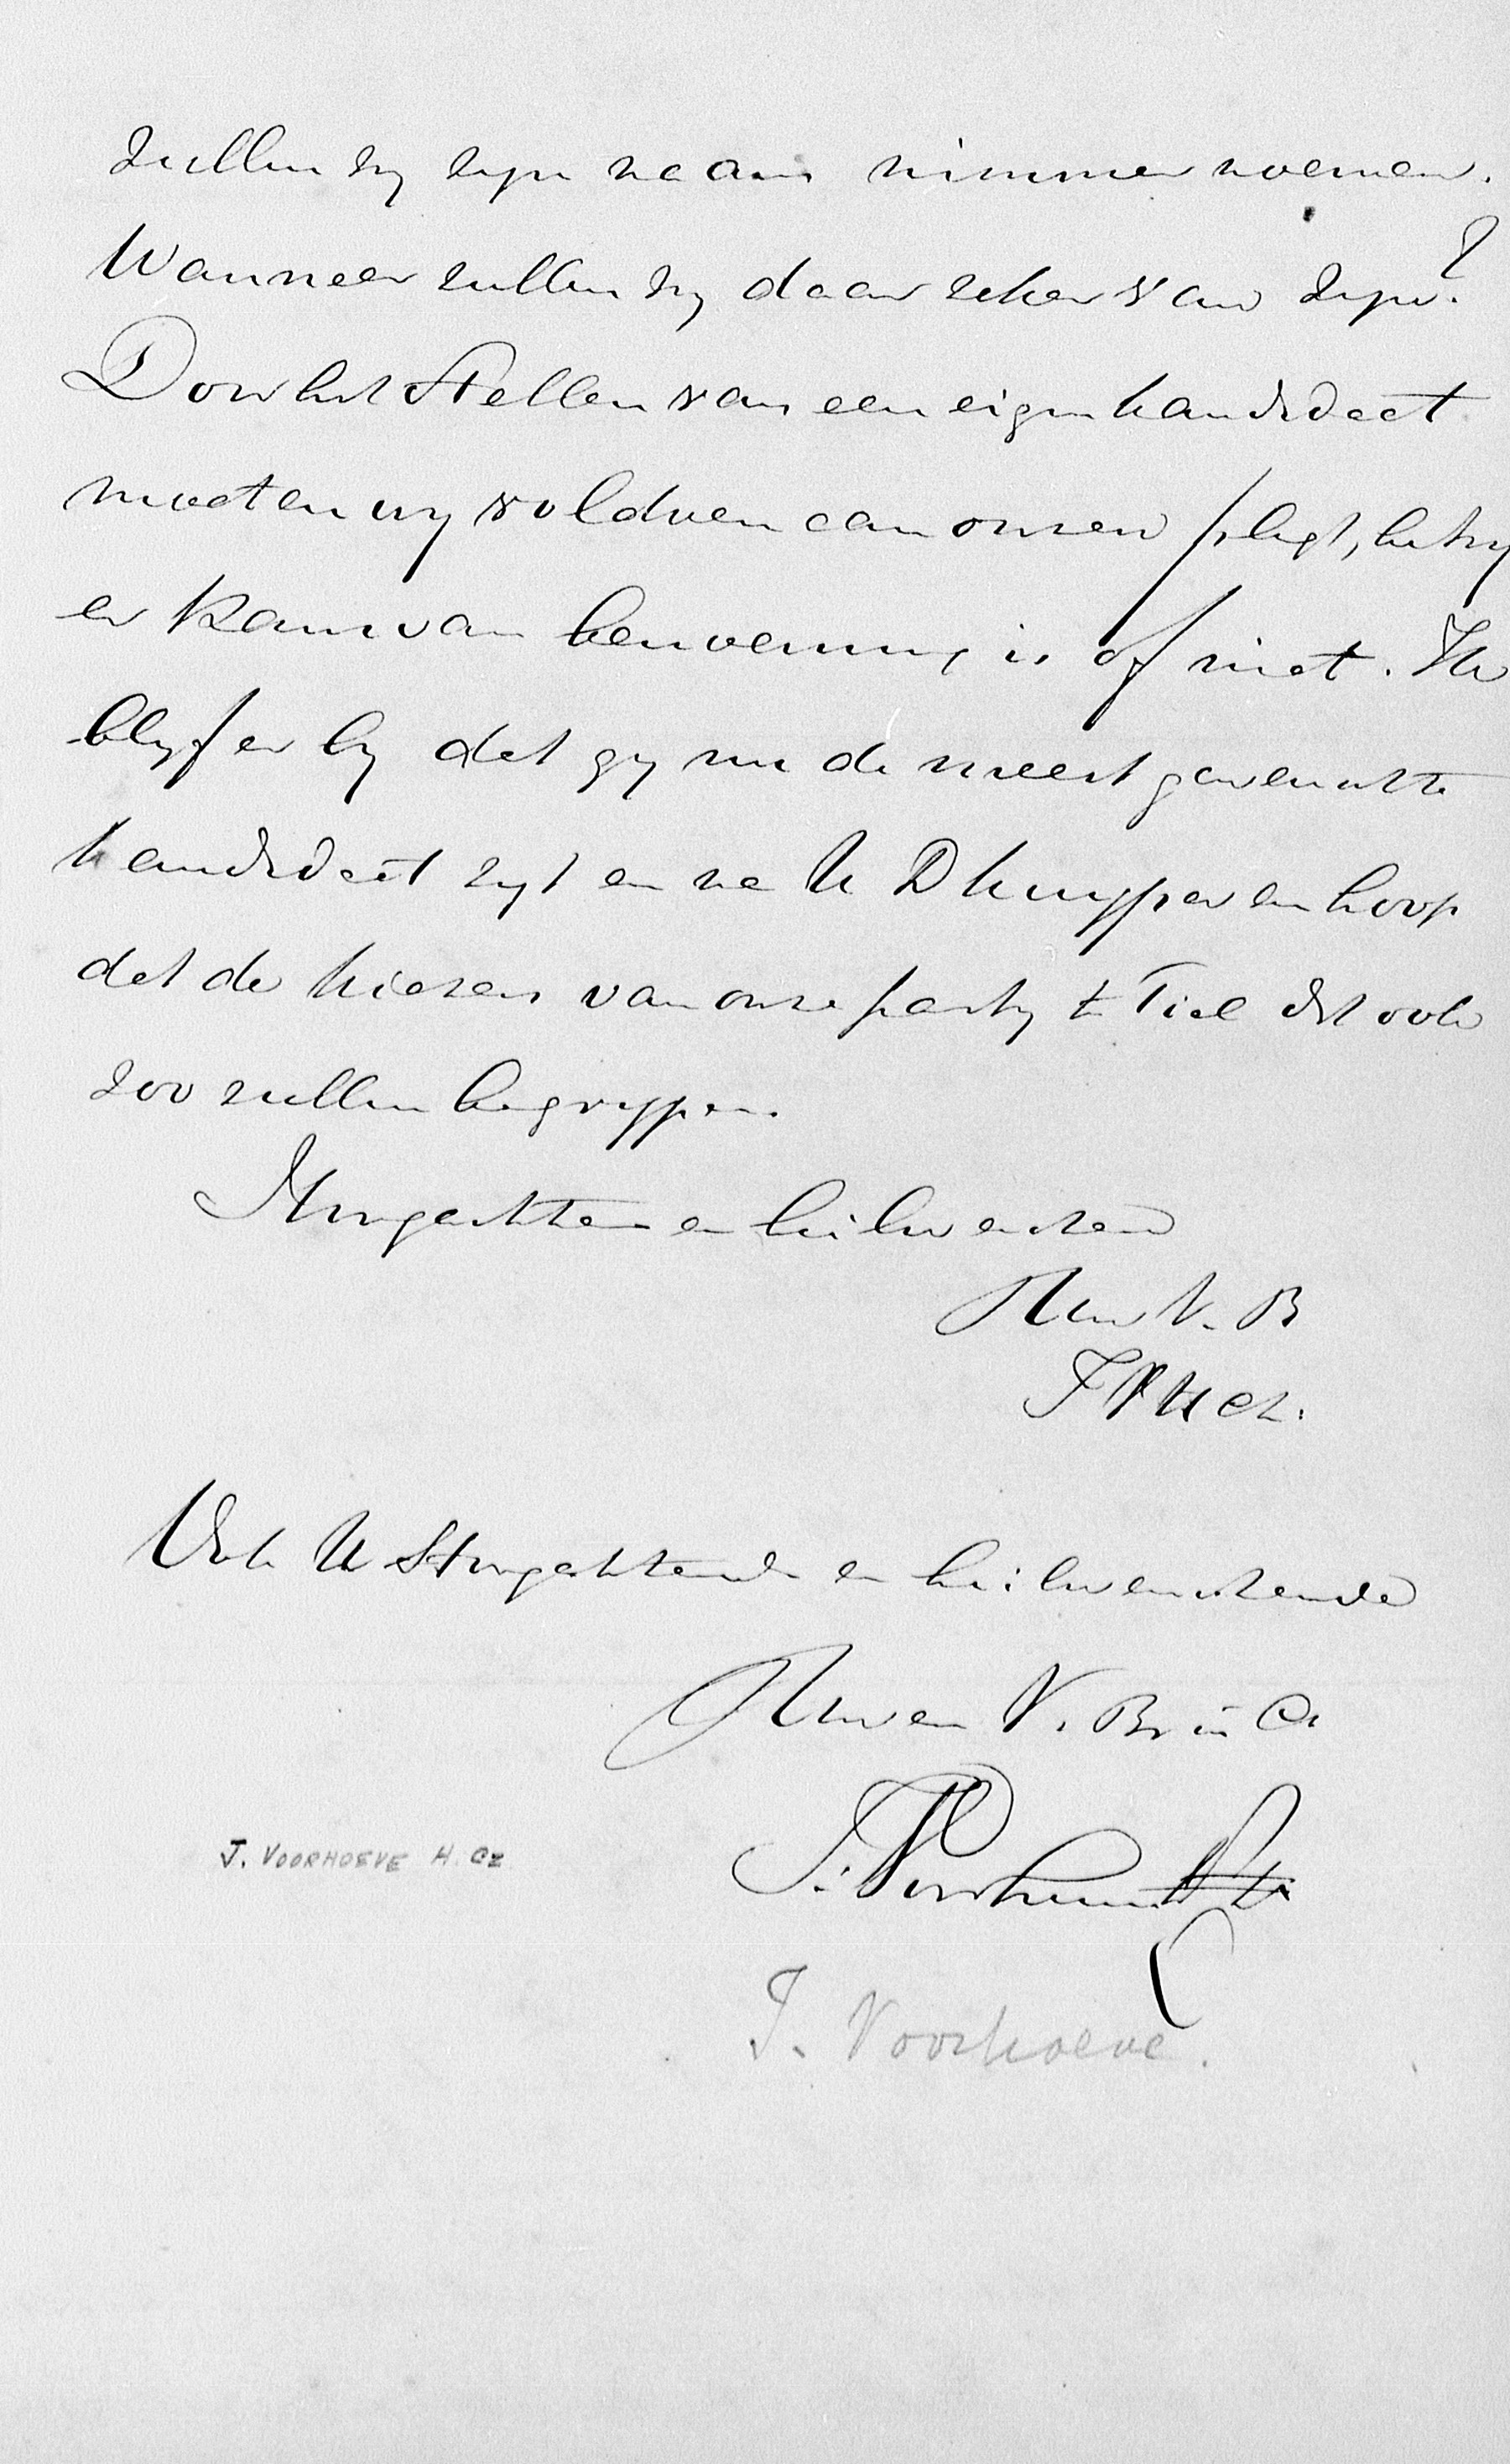 zullen zy zyn naam nimmer noemen.
Wanneer zullen zy daar zeker van zyn?
Door het stellen van een eigen kandidaat
moeten wy voldoen aan onzen pligt, het zy
er kans van benoeming is of niet. Ik
blyf er by dat gy nu de meest gewenschte
kandidaat zyt en na U D Kuyper en hoop
dat de kiezers van onze party te Tiel dit ook
zoo zullen begrypen.
Hoogachtend en heilwenschend
Uw V. B
J V H Cz.
Ook U Hoogachtende en heilwenschende
Uw en V. Br in Cr
J. Voorhoeve
J. VOORHOEVE H. CZ
J. Voorhoeve.